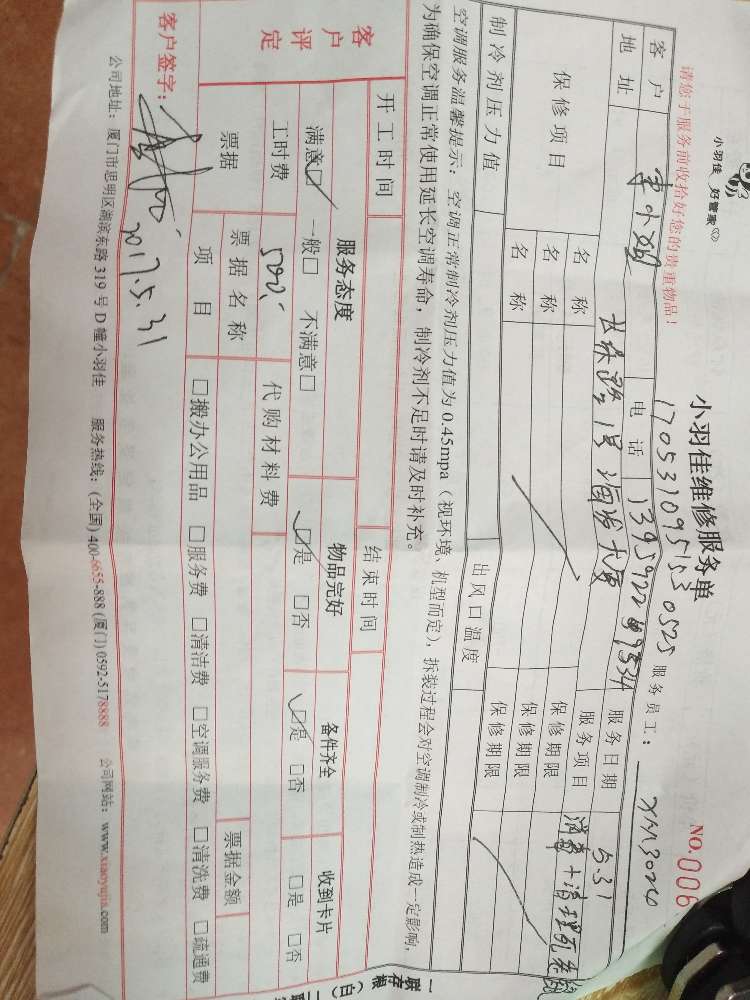 小羽佳 好管家
小羽佳维修服务单
NO.006
请您于服务前收拾好您的贵重物品!
1705310955530525 服务员工: XM3024
客户 电话 服务日期 5.31
地址 服务项目
保修项目 名称 保修期限
名称 保修期限
名称 保修期限
制冷剂压力值 出风口温度
空调服务温馨提示: 空调正常制冷剂压力值为0.45mpa(视环境、机型而定), 拆装过程会对空调制冷或制热造成一定影响,
为确保空调正常使用延长空调寿命, 制冷剂不足时请及时补充。
开工时间 结束时间
客户评定 服务态度 物品完好 备件齐全 收到卡片
满意☑ 一般□ 不满意□ ☑是 □否 ☑是 □否 □是 □否
工时费 500 代购材料费
票据 票据名称 票据金额
项目 □搬办公用品 □服务费 □清洁费 □空调服务费 □清洗费 □疏通费
客户签字: 2017.5.31
公司地址: 厦门市思明区湖滨东路319号D幢小羽佳 服务热线: (全国) 400-6655-888 (厦门) 0592-5178888 公司网站: www.xiaoyujia.com
一联存根(白)